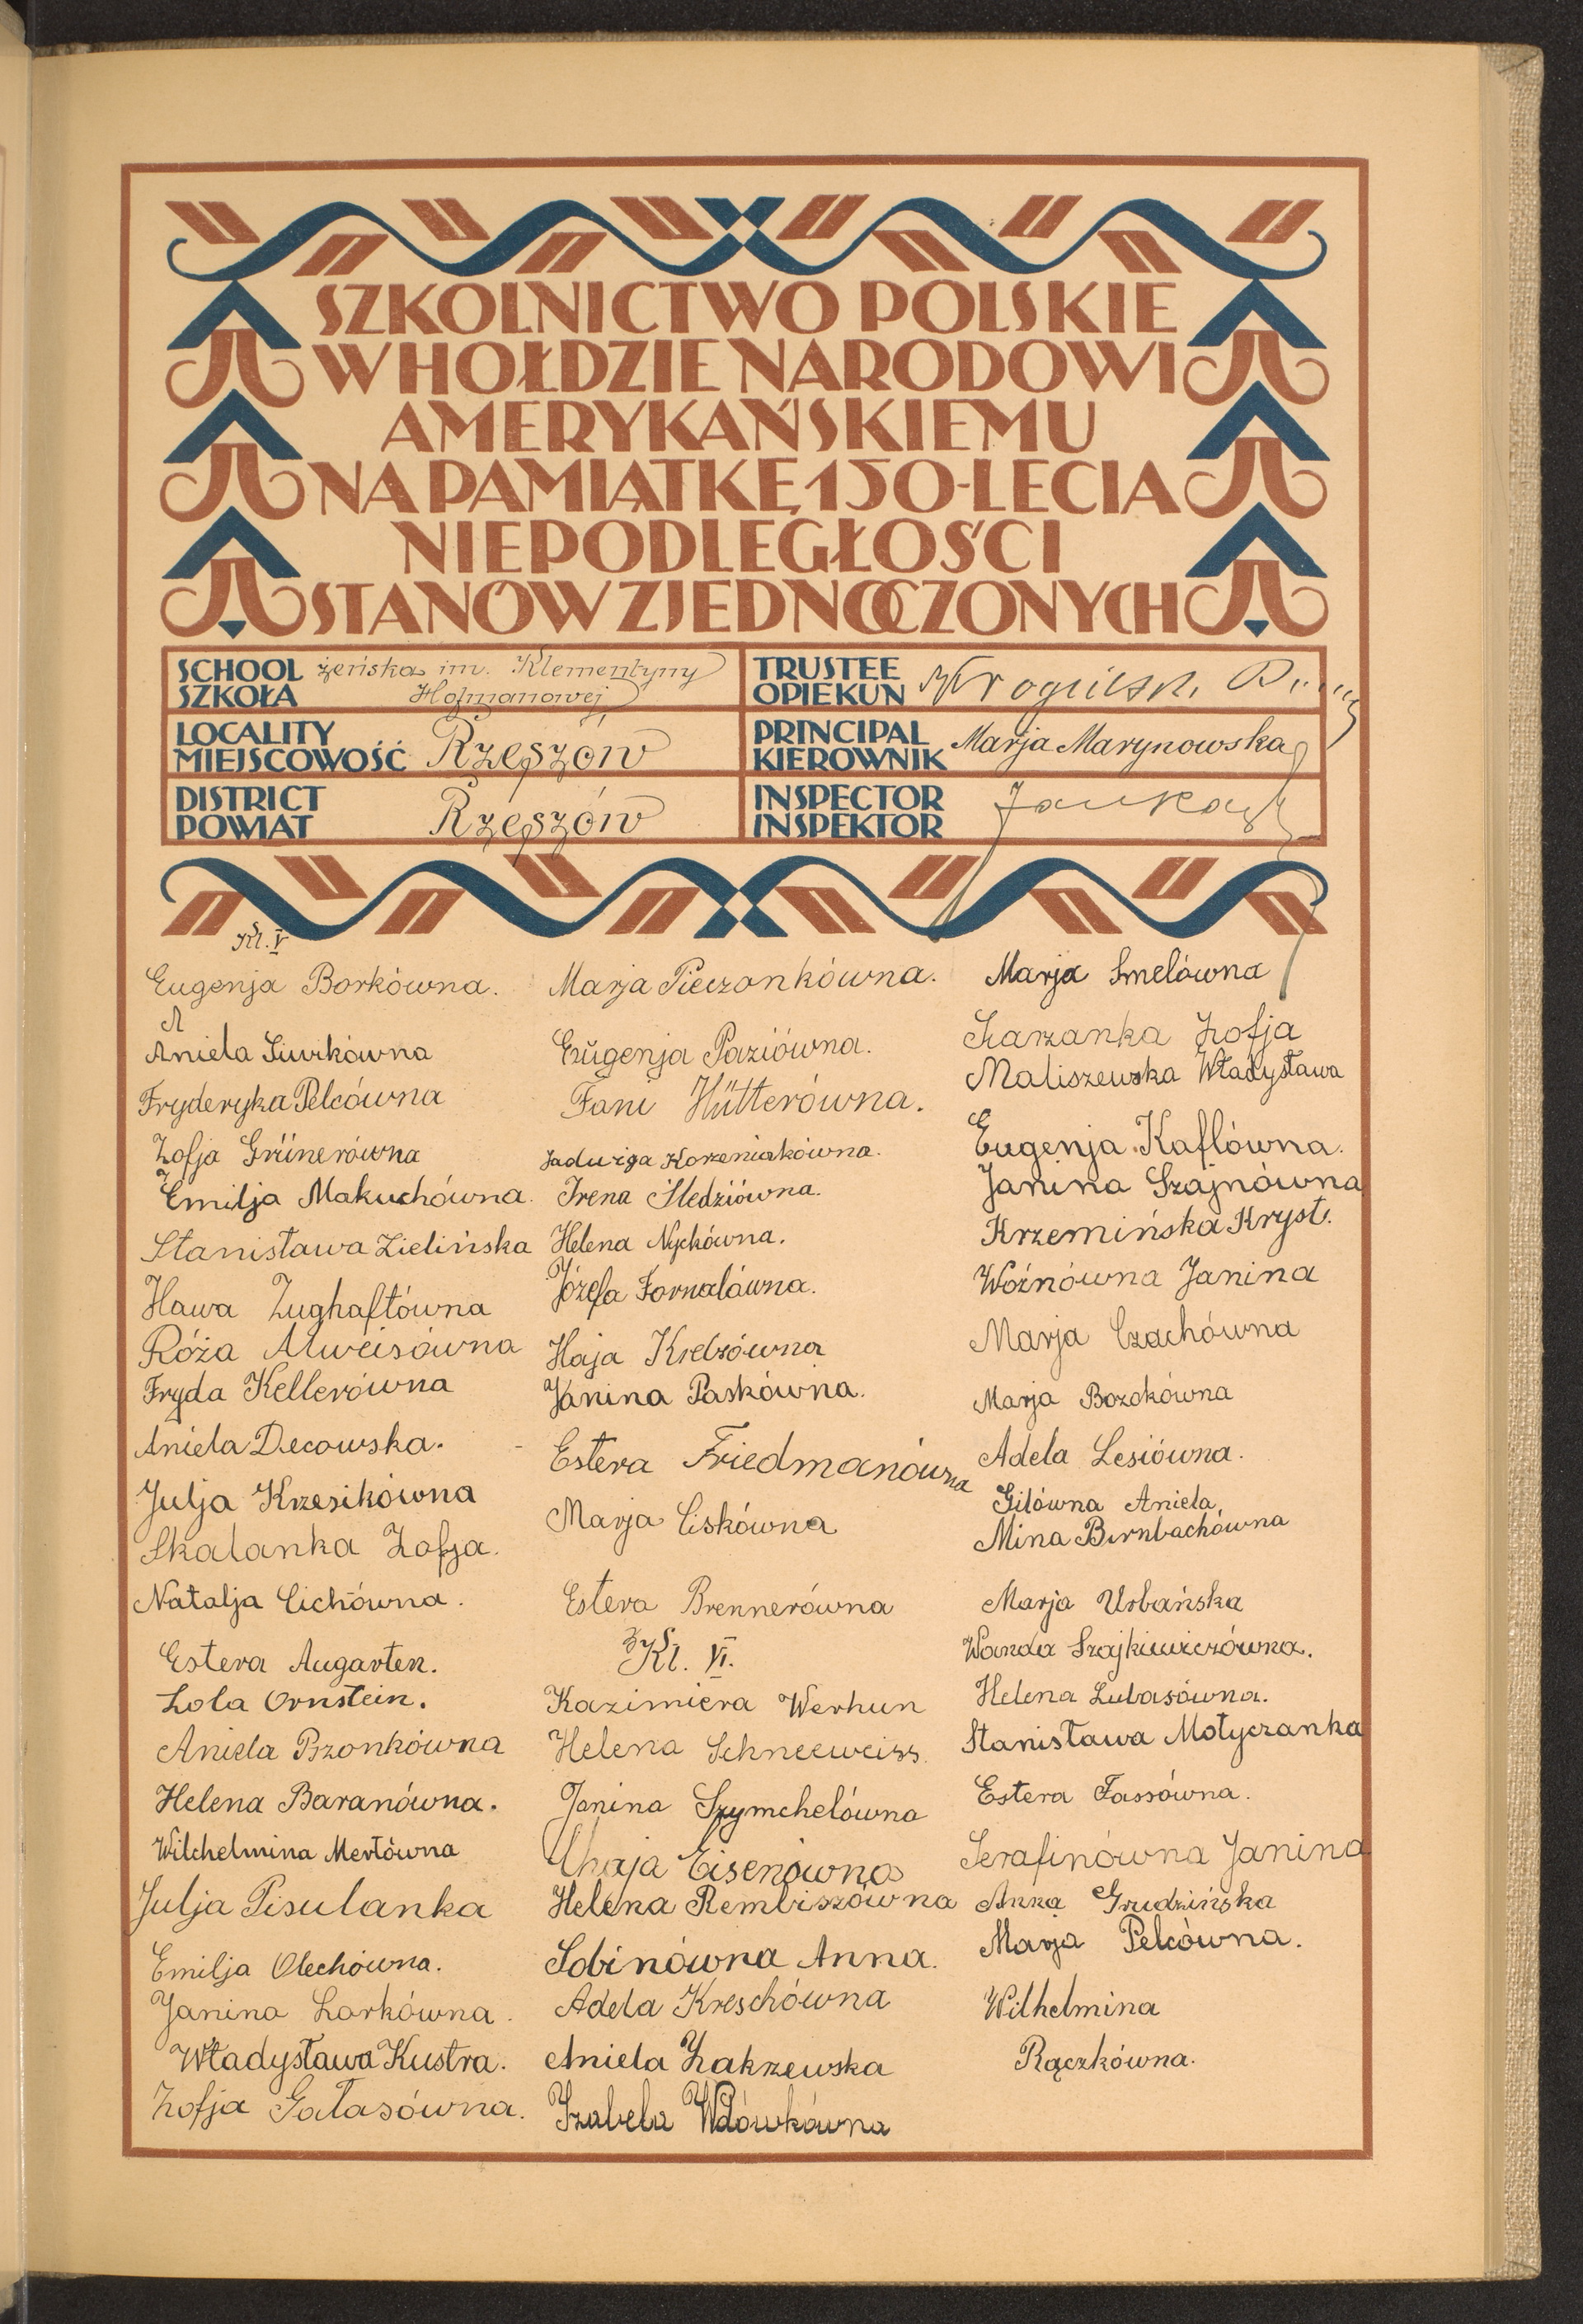 SZKOLNICTWO POLSKIE
W HOŁDZIE NARODOWI
AMERYKAŃSKIEMU
NA PAMIĄTKĘ 150-LECIA
NIEPODLEGŁOŚCI
STANÓW ZJEDNOCZONYCH
SCHOOL
SZKOŁA
żeńska im. Klementyny
Hofmanowej
TRUSTEE
OPIEKUN
LOCALITY
MIEJSCOWOŚĆ
Rzeszów
PRINCIPAL
KIEROWNIK
Marja Marynowska
DISTRICT
POWIAT
Rzeszów
INSPECTOR
INSPEKTOR
Kl. V
Eugenja Borkówna.
Aniela Siwikówna
Fryderyka Pelcówna
Zofja Grünerówna
Emilja Makuchówna.
Stanisława Zielińska
Hawa Zughaftówna
Róża Alweisówna
Fryda Kellerówna
Aniela Decowska.
Julja Krzesikówna
Skalanka Zofja.
Natalja Cichówna.
Estera Augarten.
Lola Ornstein.
Aniela Bzonkówna
Helena Baranówna.
Wilchelmina Mertówna
Julja Pisulanka
Emilja Olechówna.
Janina Larkówna.
Władysława Kustra.
Zofja Gałasówna.
Marja Pieczonkówna.
Eugenja Paziówna.
Fani Hütterówna.
Jadwiga Korzeniakówna.
Irena Śledziówna.
Helena Nyckówna.
Józefa Fornalówna.
Haja Krebsówna
Janina Paskówna.
Estera Friedmanówna
Marja Ciskówna
Estera Brennerówna
Kl. VI.
Kazimiera Werhun
Helena Schneeweiss.
Janina Szymchelówna
Chaja Eisenówna
Helena Rembiszówna
Sobinówna Anna.
Adela Kreschówna
Aniela Zakrzewska
Izabela Wdówkówna
Marja Smelówna
Szarzanka Zofja
Maliszewska Władysława
Eugenja Kaflówna.
Janina Szajnówna
Krzemińska Kryst.
Woźnówna Janina
Marja Czachówna
Marja Bozokówna
Adela Lesiówna.
Gilówna Aniela
Mina Birnbachówna
Marja Urbańska
Wanda Szajkiewiczówna.
Helena Lubasówna.
Stanisława Motyczanka
Estera Fassówna.
Serafinówna Janina
Anna Grudzińska
Marja Pelcówna.
Wilhelmina
Rączkówna.